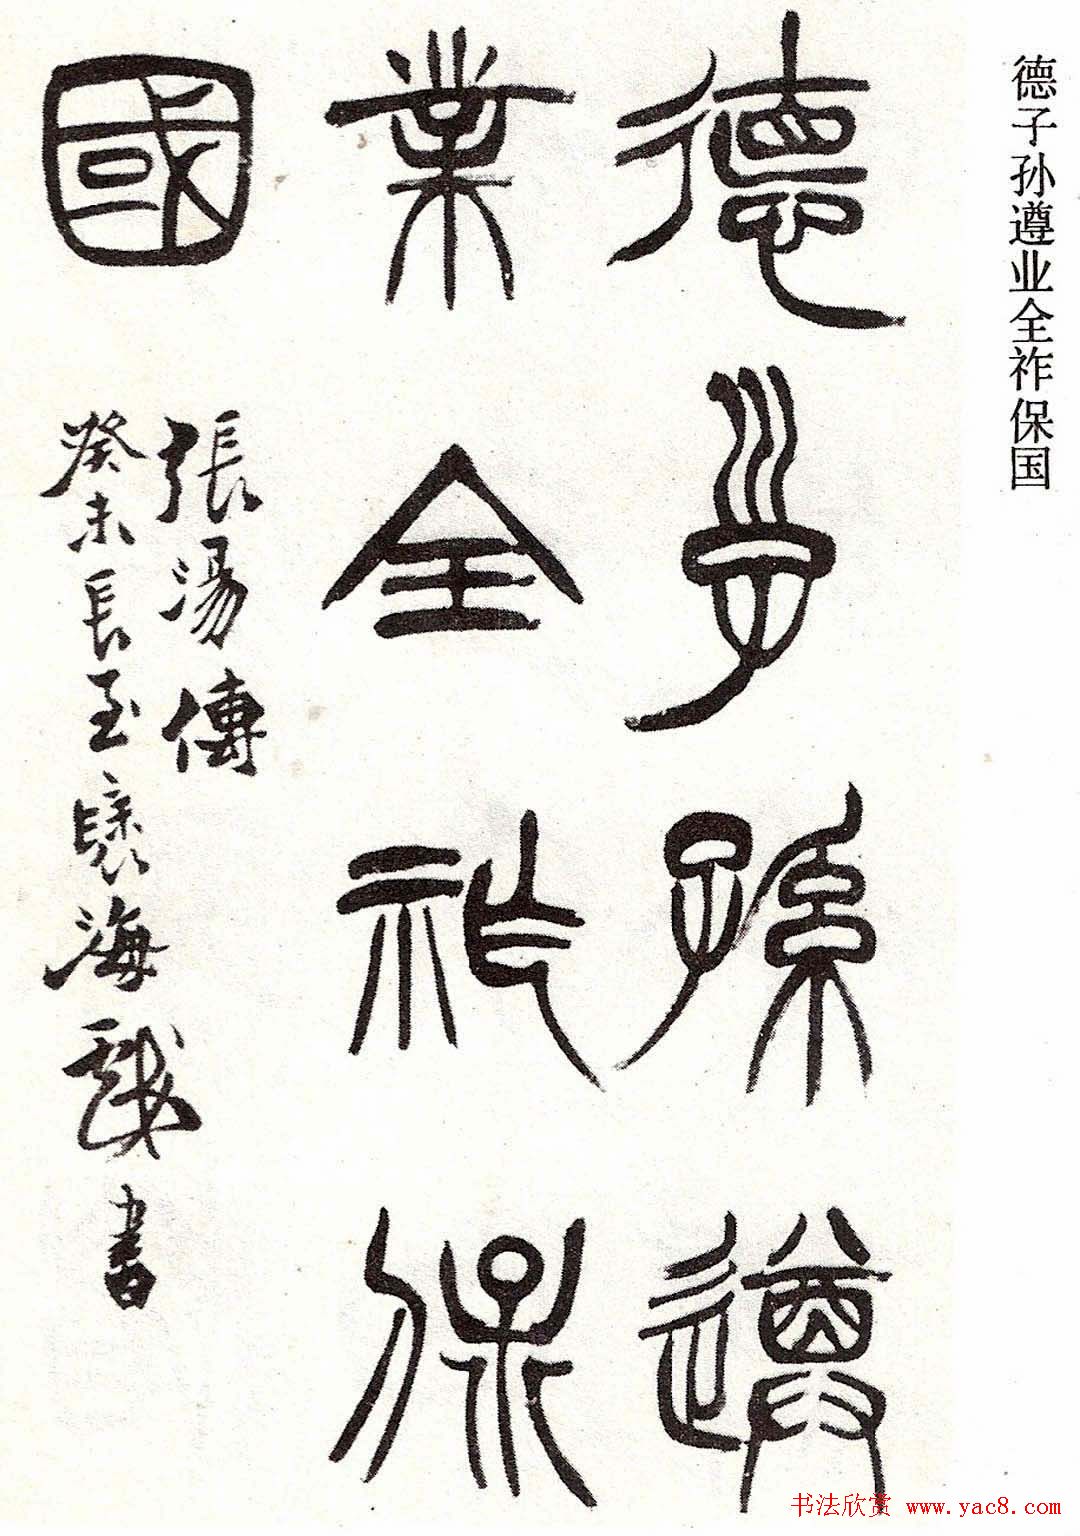 德子孙遵业全祚保国
德子孫遵
業全祚保
國
張湯傳
癸未長至海書
书法欣赏 www.yac8.com